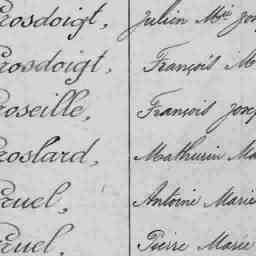 rosdoigt, Julien Mie Jos
rosdoigt, François M
roseille, François Josep
roslard, Mathurin Ma
ruel, Antoine Marie
ruel, Pierre Marie